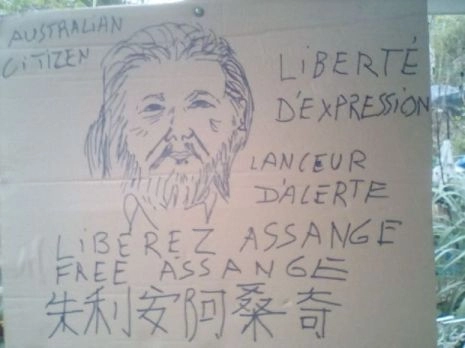 AUSTRALIAN
CITIZEN
LIBERTÉ
D'EXPRESSION
LANCEUR
D'ALERTE
LIBÉREZ ASSANGE
FREE ASSANGE
朱利安阿桑奇